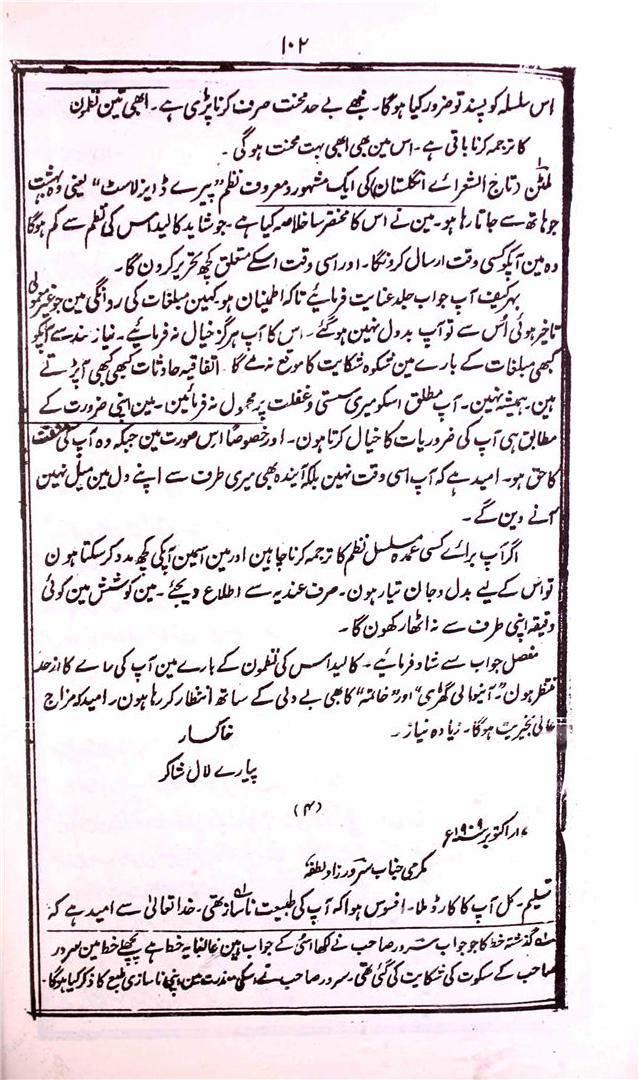 ۱۰۲
اس سلسلہ کو پسند تو ضرور کیا ہوگا۔ مجھے بے حد محنت صرف کرنا پڑی ہے۔ ابھی تین نظمون
کا ترجمہ کرنا باقی ہے۔ اس مین بھی ابھی بہت محنت ہوگی۔
ملٹن (تاج الشعرائے انگلستان) کی ایک مشہور و معروف نظم "پیرے ڈایز لاسٹ" یعنی وہ بہشت
جو ہاتھ سے جاتا رہا ہو۔ مین نے اس کا مختصر سا خلاصہ کیا ہے۔ جو شاید کالیداس کی نظم سے کم ہوگا
وہ مین آپکو کسی وقت ارسال کرونگا۔ اور اسی وقت اسکے متعلق کچھ تحریر کرون گا۔
بہر کیف آپ جواب جلد عنایت فرمائیے تاکہ اطمینان ہو کہین مبلغات کی روانگی مین جو غیر معمولی
تاخیر ہوئی اُس سے تو آپ بددل نہین ہوگئے۔ اس کا آپ ہرگز خیال نہ فرمائیے۔ نیازمند سے آپکو
کبھی مبلغات کے بارے مین شکوہ شکایت کا موقع نہ ملے گا۔ اتفاقیہ حادثات کبھی کبھی آپڑتے
ہین۔ ہمیشہ نہین۔ آپ مطلق اسکو میری سستی و غفلت پر محمول نہ فرمائین۔ مین اپنی ضرورت کے
مطابق ہی آپ کی ضروریات کا خیال کرتا ہون۔ اور خصوصاً اس صورت مین جبکہ وہ آپ کی محنت
کا حق ہو۔ امید ہے کہ آپ اسی وقت نہین بلکہ آیندہ بھی میری طرف سے اپنے دل مین میل نہین
آنے دین گے۔
اگر آپ برائے کسی عمدہ مسلسل نظم کا ترجمہ کرنا چاہین اور مین اسمین آپکی کچھ مدد کر سکتا ہون
تو اس کے لیے بدل و جان تیار ہون۔ صرف عندیہ سے اطلاع دیجئے۔ مین کوشش مین کوئی
دقیقہ اپنی طرف سے نہ اٹھا رکھون گا۔
مفصل جواب سے شاد فرمائیے۔ کالیداس کی نظمون کے بارے مین آپ کی رائے کا از حد
منتظر ہون۔ "آنیوالی گھڑی" اور "خاتمہ" کا بھی بے دلی کے ساتھ انتظار کر رہا ہون۔ امید کہ مزاج
عالی بخیریت ہوگا۔ زیادہ نیاز۔
خاکسار
پیارے لال شاکر
(۴)
۱۷ اکتوبر سنہ ۱۹۰۹ء
مکرمی جناب سرور زاد لطفہ
تسلیم۔ کل آپ کا کارڈ ملا۔ افسوس ہوا کہ آپ کی طبیعت ناساز تھی۔ خدا تعالیٰ سے امید ہے کہ
گذشتہ خط کا جو جواب سرور صاحب نے لکھا اسی کے جواب مین غالباً یہ خط ہے پچھلے خط مین سرور
صاحب کے سکوت کی شکایت کی گئی تھی۔ سرور صاحب نے اسکی معذرت مین اپنی ناسازی طبع کا ذکر کیا ہوگا۔